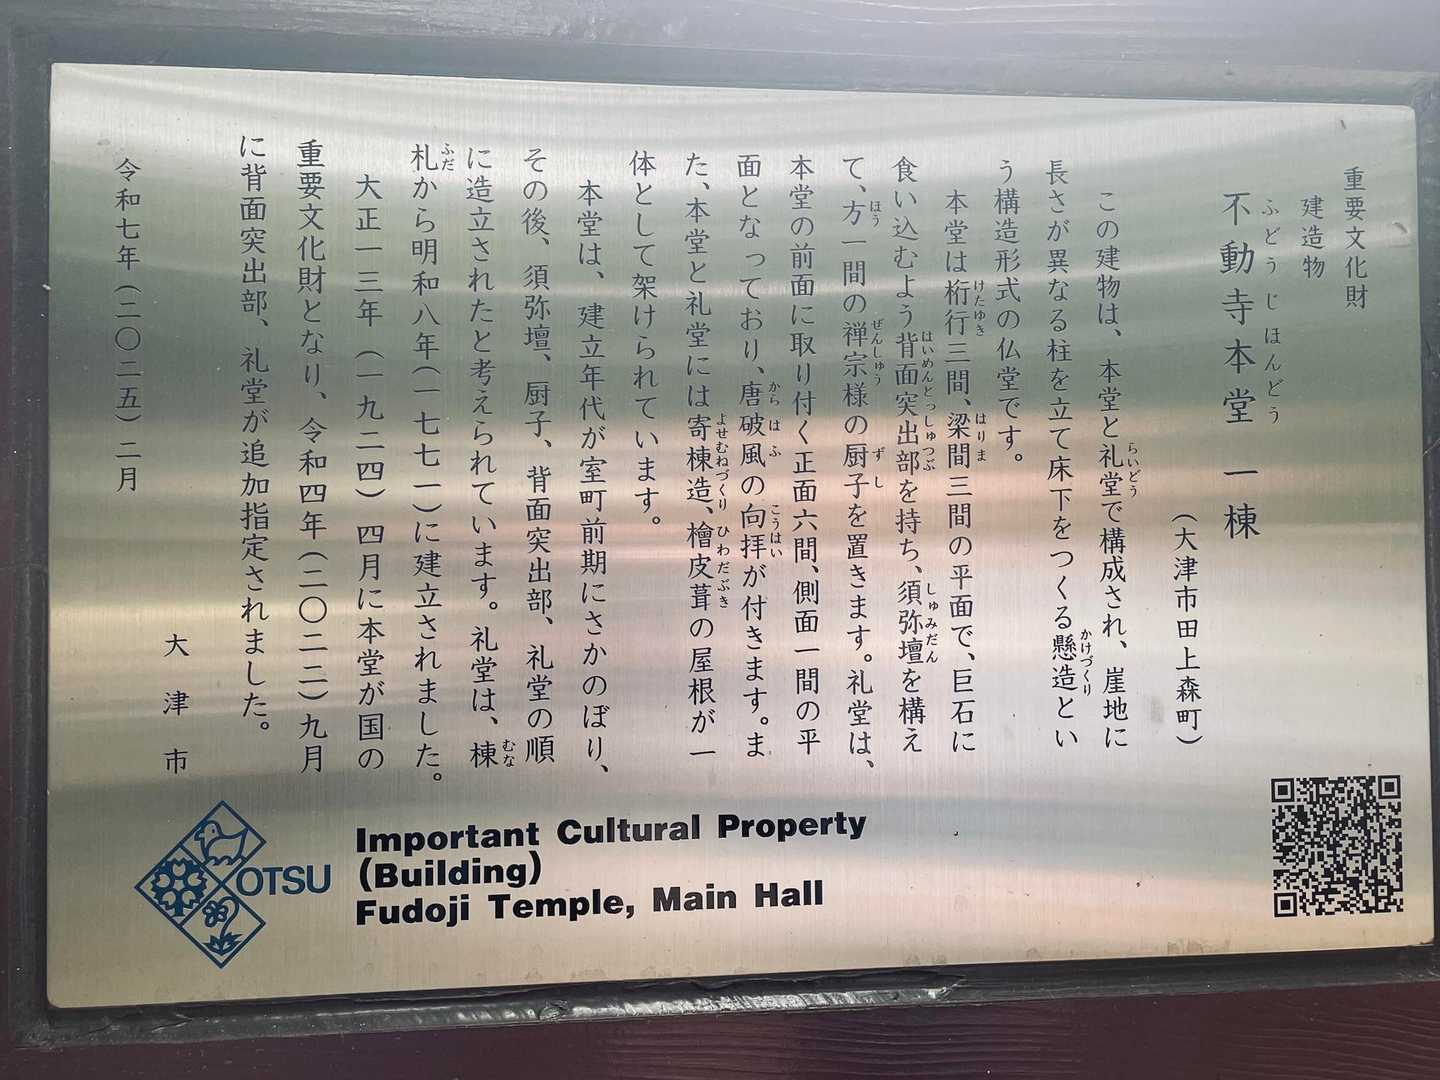 重要文化財
建造物
不動寺本堂 一棟
ふどうじほんどう
（大津市田上森町）
この建物は、本堂と礼堂で構成され、崖地に
らいどう
長さが異なる柱を立て床下をつくる懸造とい
かけづくり
う構造形式の仏堂です。
本堂は桁行三間、梁間三間の平面で、巨石に
けたゆき はりま
食い込むよう背面突出部を持ち、須弥壇を構え
はいめんとっしゅつぶ しゅみだん
て、方一間の禅宗様の厨子を置きます。礼堂は、
ほう ぜんしゅう ずし
本堂の前面に取り付く正面六間、側面一間の平
面となっており、唐破風の向拝が付きます。ま
からはふ こうはい
た、本堂と礼堂には寄棟造、檜皮葺の屋根が一
よせむねづくり ひわだぶき
体として架けられています。
本堂は、建立年代が室町前期にさかのぼり、
その後、須弥壇、厨子、背面突出部、礼堂の順
に造立されたと考えられています。礼堂は、棟
むな
札から明和八年（一七七一）に建立されました。
ふだ
大正一三年（一九二四）四月に本堂が国の
重要文化財となり、令和四年（二〇二二）九月
に背面突出部、礼堂が追加指定されました。
大津市
令和七年（二〇二五）二月
OTSU
Important Cultural Property
(Building)
Fudoji Temple, Main Hall